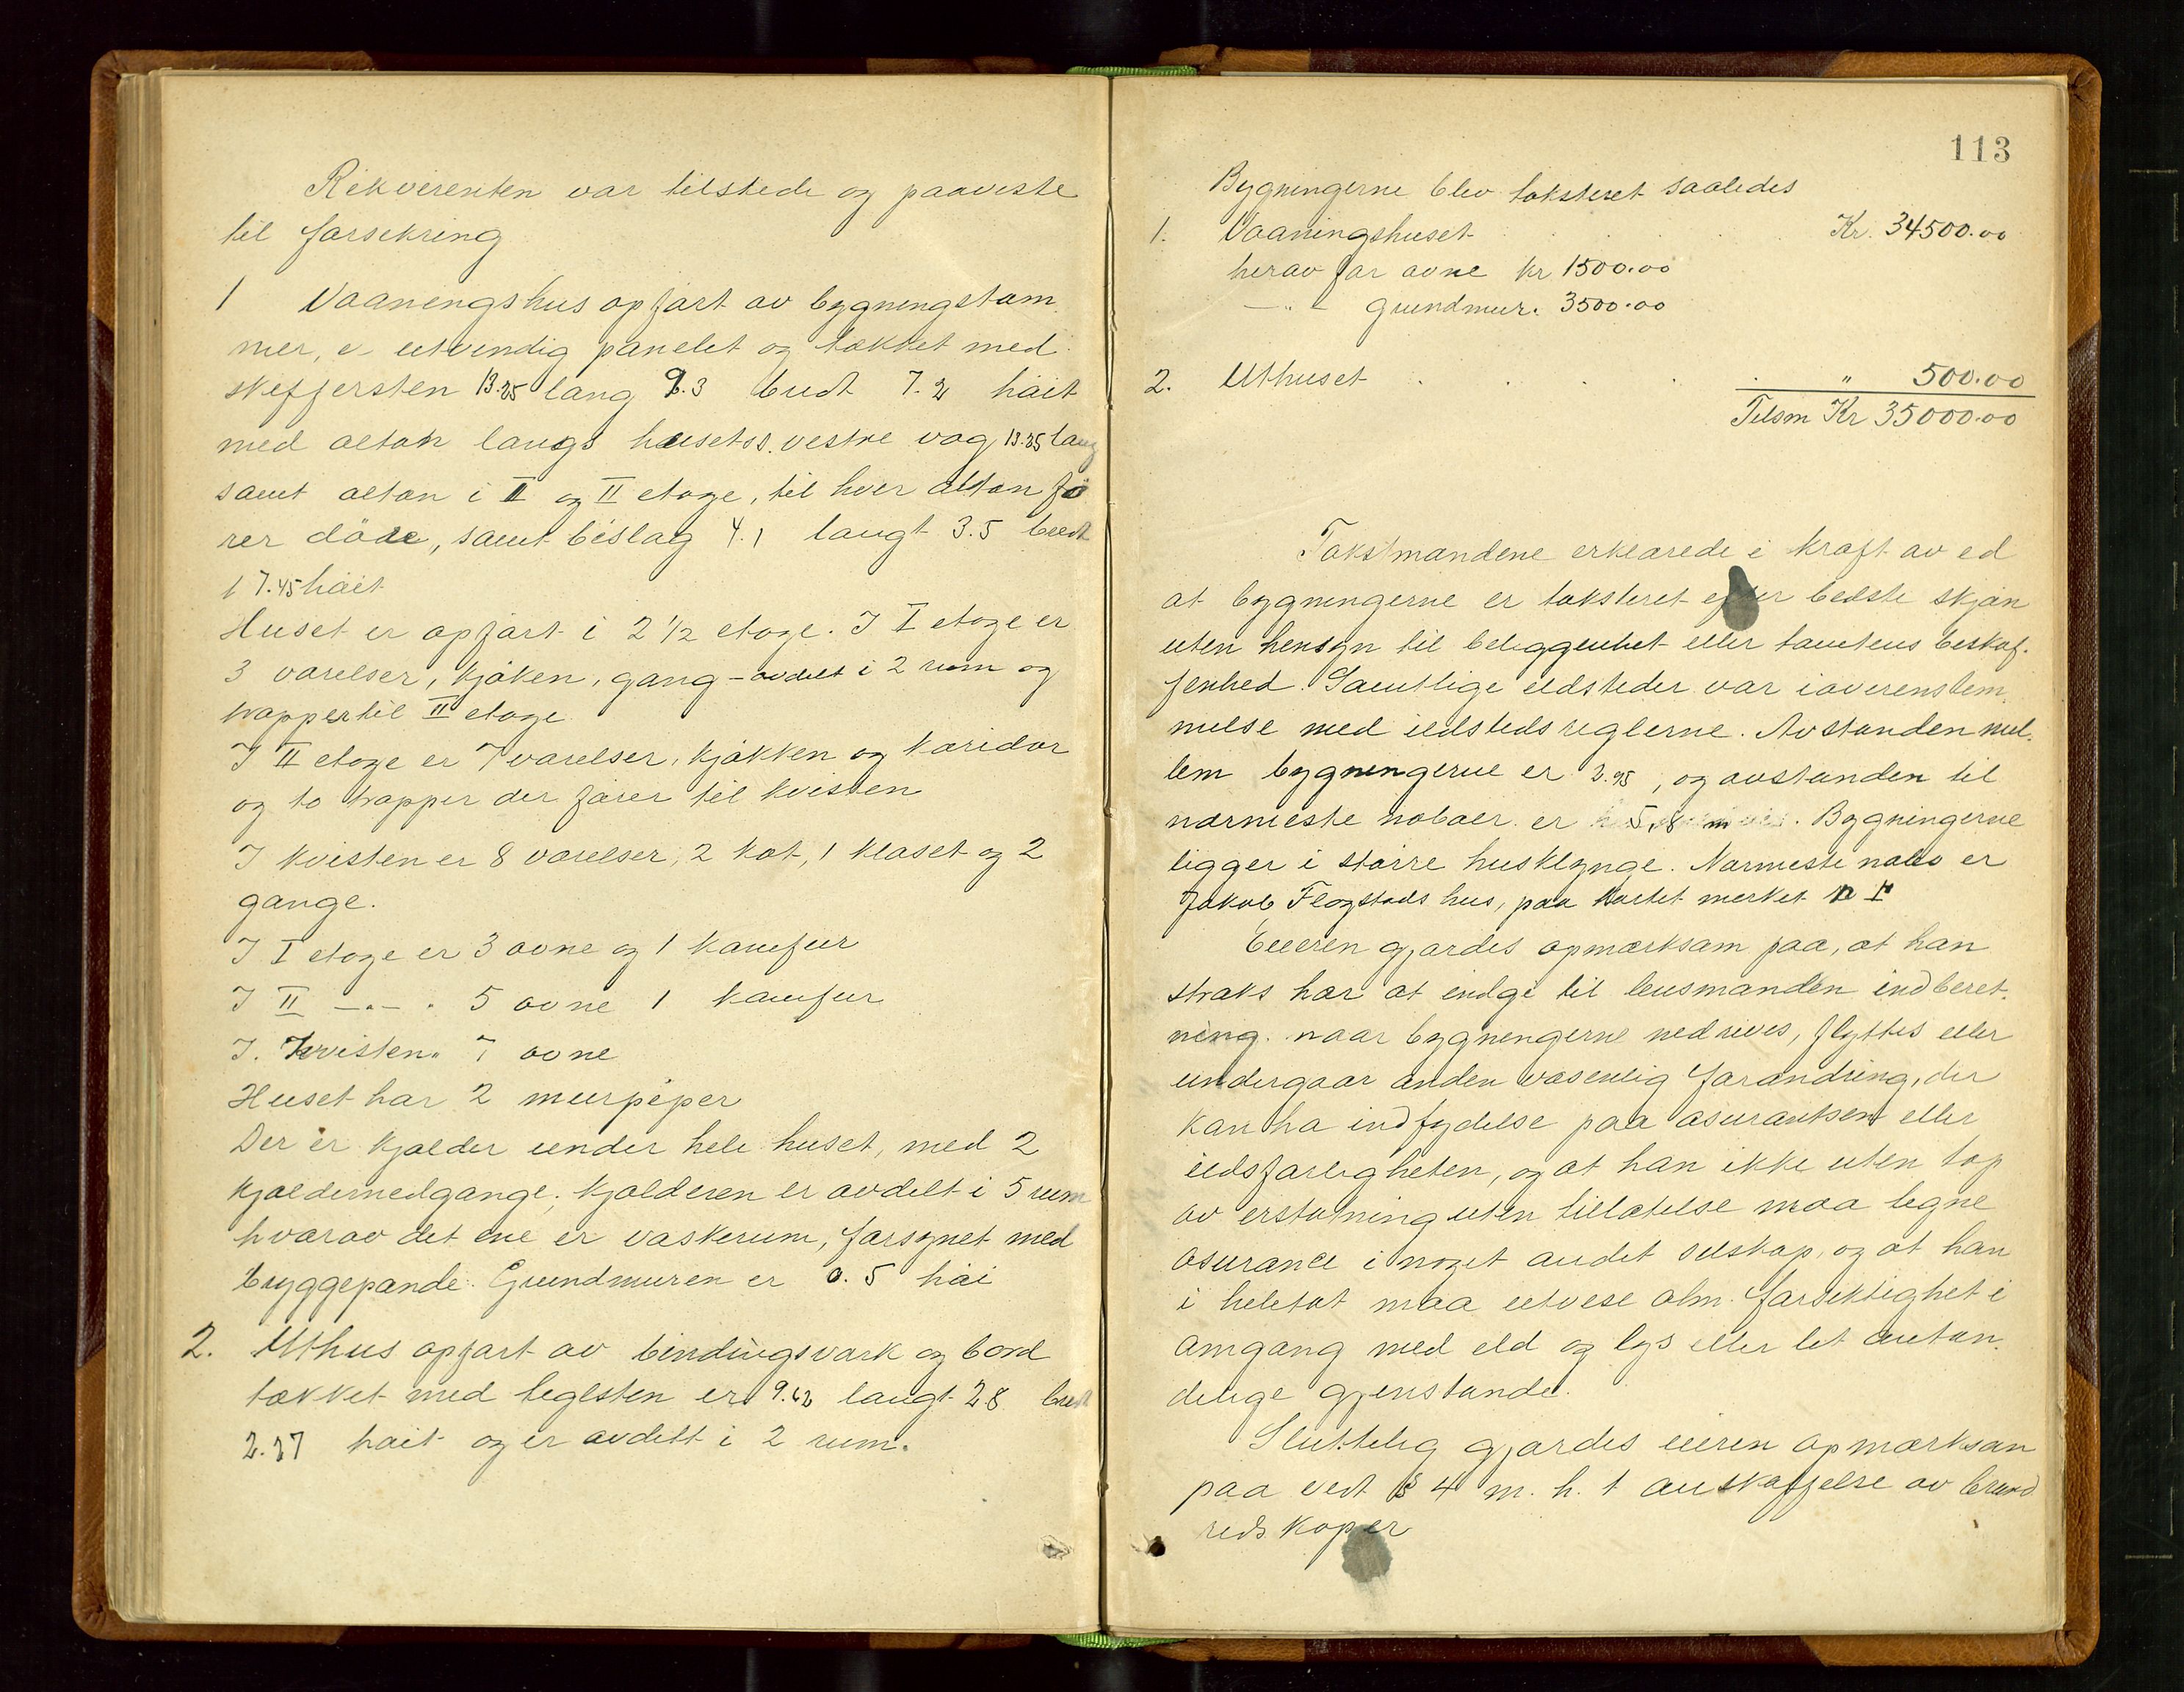 Rekvirenten var tilstede og paaviste
til forsekring
1 Vaaningshus opført av bygningstøm
mer, utvendig panelet og tækket med
skiffersten 13.25 lang 9.3 bredt 7.2 høit
med altan langs husets vestre væg 13.25 lang
samt altan i I og II etage, til hver altan fø
rer døre, samt bislag 4.1 langt 3.5 bredt
17.45 høit
Huset er opført i 2 1/2 etage. I I etage er
3 værelser, kjøken, gang - avdelt i 2 rum og
trapper til II etage
I II etage er 7 værelser, kjøkken og koridor
og to trapper der fører til kvisten
I kvisten er 8 værelser, 2 kot, 1 kloset og 2
gange.
I I etage er 3 ovne og 1 komfur
I II -"- " 5 ovne 1 komfur
I. Kvisten " 7 ovne
Huset har 2 murpiper
Der er kjælder under hele huset, med 2
kjældernedgange; kjælderen er avdelt i 5 rum
hvorav det ene er vaskerum, forsynet med
bryggepande. Grundmuren er 0.5 høi
2. Uthus opført av bindingsværk og bord
tækket med teglsten er 9.62 langt 2.8 bredt
2.27 høit og er avdelt i 2 rum.
113
Bygningerne blev taksteret saaledes
1. Vaaningshuset Kr. 34500.00
herav for ovne kr 1500.00
-"- grundmur. 3500.00
2. Uthuset " 500.00
Tilsm Kr 35000.00
Takstmændene erklærede i kraft av ed
at bygningerne er taksteret efter bedste skjøn
uten hensyn til beliggenhet eller tomtens beskaf-
fenhed. Samtlige ildsteder var i overenstem
melse med ildstedsreglerne. Avstanden mel-
lem bygningerne er 3.95, og avstanden til
nærmeste naboer er 5,8 m. Bygningerne
ligger i større husklynge. Nærmeste nabo er
Jakob Flogstads hus, paa kartet merket n I
Eieren gjordes opmærksom paa, at han
straks har at indgi til lensmanden indberet-
ning naar bygningerne nedrives, flyttes eller
undergaar anden væsenlig forandring, der
kan ha indflydelse paa asurantsen eller
ildsfarligheten, og at han ikke uten tap
av erstatning uten tillatelse maa tegne
asurance i noget andet selskap, og at han
i heletat maa utvise alm. forsiktighet i
omgang med eld og lys eller let antæn-
delige gjenstande.
Sluttelig gjordes eieren opmærksom
paa vedt § 4 m. h. t anskaffelse av brand
redskaper